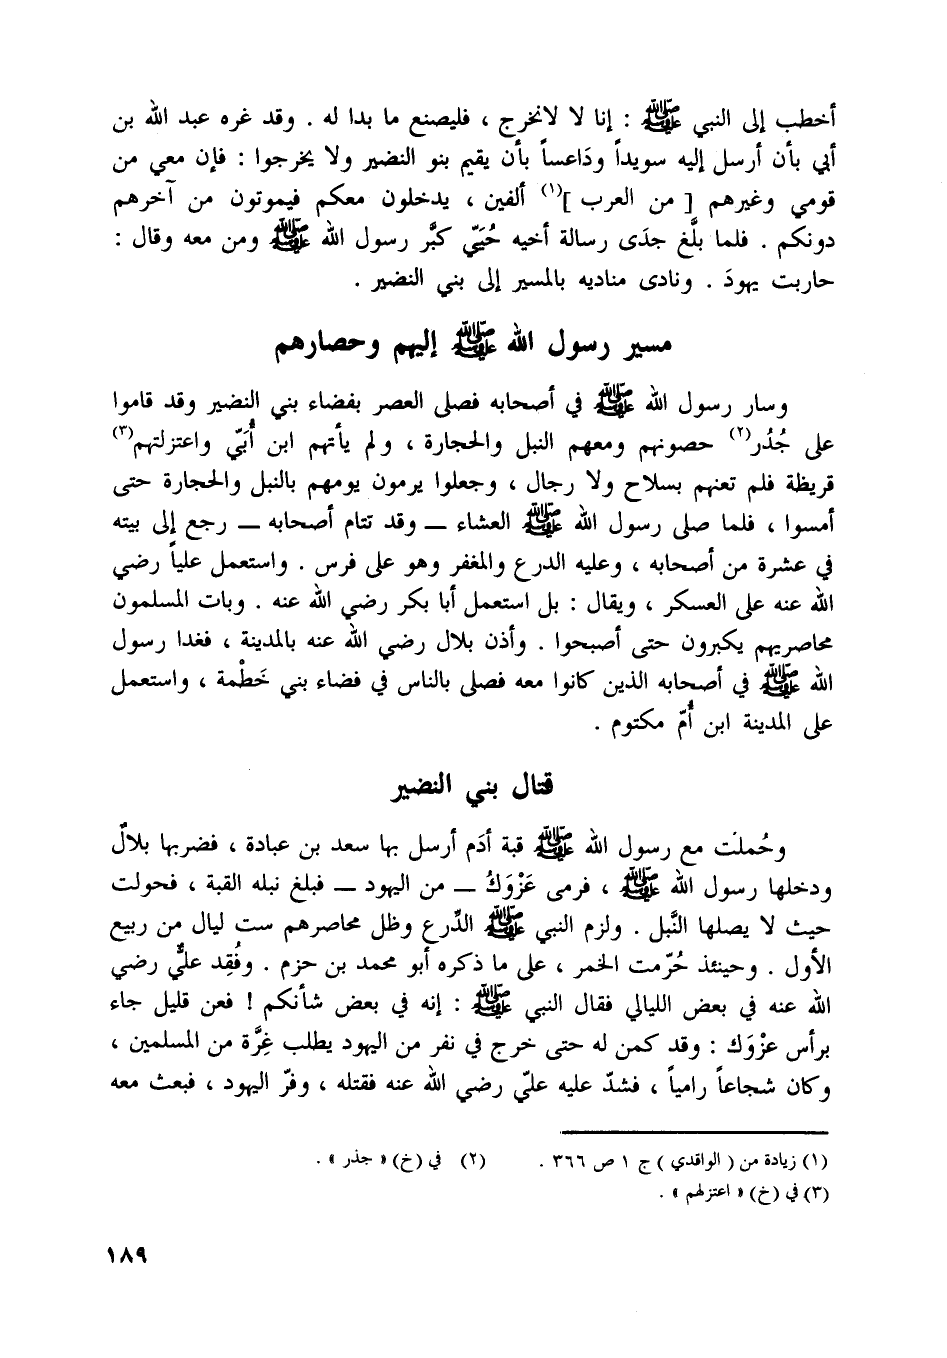 أخطب إلى النبي ﷺ : إنا لا لانخرج ، فليصنع ما بدا له . وقد غره عبد الله بن
أبي بأن أرسل إليه سويداً ودَاعساً بأن يقيم بنو النضير ولا يخرجوا : فإن معي من
قومي وغيرهم [ من العرب ](١) ألفين ، يدخلون معكم فيموتون من آخرهم
دونكم . فلما بلَّغ جدَى رسالة أخيه حُيَيّ كبَّر رسول الله ﷺ ومن معه وقال :
حاربت يهودَ . ونادى مناديه بالمسير إلى بني النضير .
مسير رسول الله ﷺ إليهم وحصارهم
وسار رسول الله ﷺ في أصحابه فصلى العصر بفضاء بني النضير وقد قاموا
على جُدُر(٢) حصونهم ومعهم النبل والحجارة ، ولم يأتهم ابن أُبَيّ واعتزلتهم(٣)
قريظة فلم تعنهم بسلاح ولا رجال ، وجعلوا يرمون يومهم بالنبل والحجارة حتى
أمسوا ، فلما صلى رسول الله ﷺ العشاء — وقد تتام أصحابه — رجع إلى بيته
في عشرة من أصحابه ، وعليه الدرع والمغفر وهو على فرس . واستعمل علياً رضي
الله عنه على العسكر ، ويقال : بل استعمل أبا بكر رضي الله عنه . وبات المسلمون
محاصريهم يكبرون حتى أصبحوا . وأذن بلال رضي الله عنه بالمدينة ، فغدا رسول
الله ﷺ في أصحابه الذين كانوا معه فصلى بالناس في فضاء بني خَطْمة ، واستعمل
على المدينة ابن أُمّ مكتوم .
قتال بني النضير
وحُملَت مع رسول الله ﷺ قبة أدَم أرسل بها سعد بن عبادة ، فضربها بلالٌ
ودخلها رسول الله ﷺ ، فرمى عَزْوَكُ — من اليهود — فبلغ نبله القبة ، فحولت
حيث لا يصلها النَّبل . ولزم النبي ﷺ الدِّرع وظل محاصرهم ست ليال من ربيع
الأول . وحينئذ حُرّمت الخمر ، على ما ذكره أبو محمد بن حزم . وفُقِد عليٌّ رضي
الله عنه في بعض الليالي فقال النبي ﷺ : إنه في بعض شأنكم ! فعن قليل جاء
برأس عزْوَك : وقد كمن له حتى خرج في نفر من اليهود يطلب غِرَّة من المسلمين ،
وكان شجاعاً رامياً ، فشدّ عليه عليّ رضي الله عنه فقتله ، وفرّ اليهود ، فبعث معه
(١) زيادة من ( الواقدي ) ج ١ ص ٣٦٦ . (٢) في (خ) « جذر » .
(٣) في (خ) « اعتزلهم » .
١٨٩